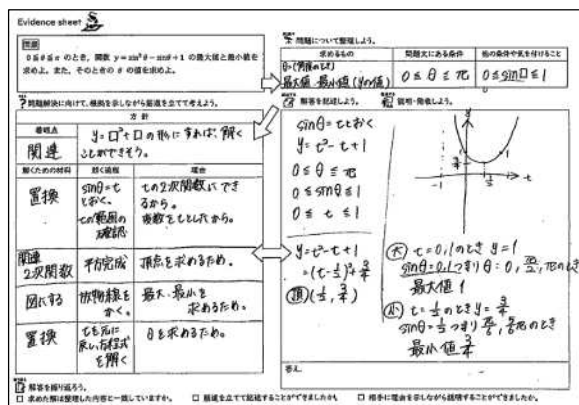 Evidence sheet
問題
0≦θ≦π のとき、関数 y=sin²θ-sinθ+1 の最大値と最小値を
求めよ。また、そのときの θ の値を求めよ。
問題について整理しよう。
求めるもの
問題文にある条件
他の条件や気を付けること
最大値 最小値 (yの値)
0≦θ≦π
0≦sin□≦1
問題解決に向けて、根拠を示しながら筋道を立てて考えよう。
方針
着眼点
関連
y=□²+□の形にすれば、解く
ことができそう。
解くための材料
解く過程
理由
置換
sinθ=t
とおく。
tの範囲の
確認
tの2次関数にでき
るから。
変数をtとしたから。
関連
2次関数
平方完成
頂点を求めるため。
図にする
放物線を
かく。
最大、最小を
求めるため。
置換
tを元に
戻し方程式
を解く
θを求めるため。
解答を記述しよう。
sinθ=tとおく
y=t²-t+1
0≦θ≦π
0≦sinθ≦1
0≦t≦1
y=t²-t+1
=(t-1/2)²+3/4
頂(1/2, 3/4)
説明・発表しよう。
y
1
3/4
-1
1/2
1
t
大 t=0,1のとき y=1
sinθ=0,1つまりθ=0, π/2, πのとき
最大値 1
小 t=1/2のとき y=3/4
sinθ=1/2 つまり π/6, 5/6πのとき
最小値 3/4
答え
解答を振り返ろう。
□ 求めた解は整理した内容と一致していますか。 □ 筋道を立てて記述することができましたか □ 相手に理由を示しながら説明することができましたか。